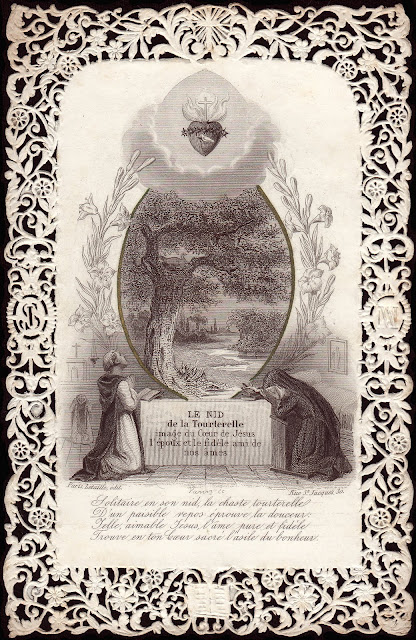 LE NID
de la Tourterelle
image du Cœur de Jésus
l'époux et le fidèle ami de
nos âmes
Paris Letaille, édit. Rue St Jacques, 30.
Solitaire en son nid, la chaste tourterelle
D'un paisible repos éprouve la douceur:
Telle, aimable Jésus, l'âme pure et fidèle
Trouve en ton Cœur sacré l'asile du bonheur.